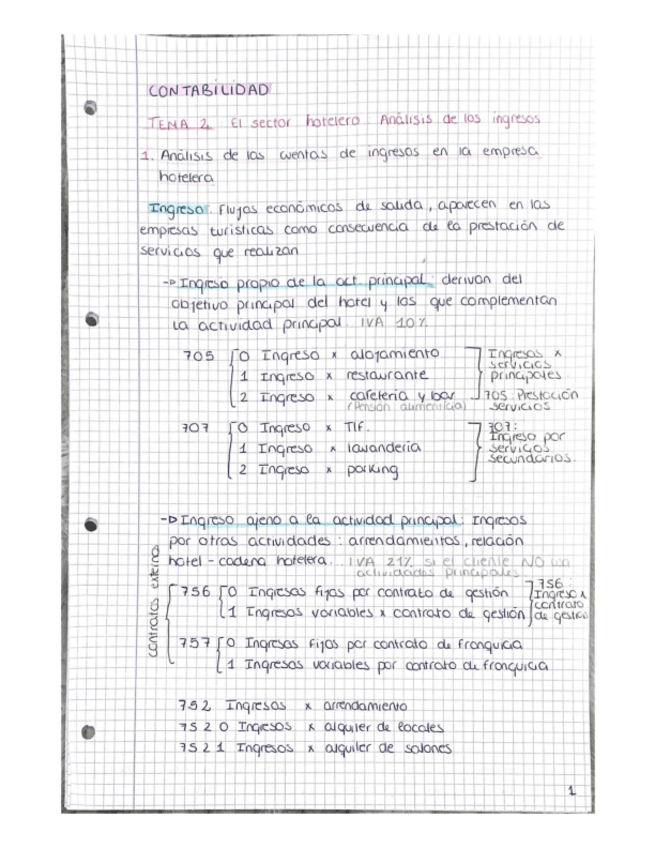 CONTABILIDAD
TEMA 2. El sector hotelero: Análisis de los ingresos
1. Análisis de las cuentas de ingresos en la empresa
hotelera
Ingreso: Flujos económicos de salida, aparecen en las
empresas turísticas como consecuencia de la prestación de
servicios que realizan
-▷ Ingreso propio de la act. principal: derivan del
objetivo principal del hotel y los que complementan
la actividad principal IVA 10%
705 0 Ingreso x alojamiento
1 Ingreso x restaurante
2 Ingreso x cafetería y bar
(Pensión alimenticia)
Ingresos x
servicios
principales
705: Prestación
servicios
707 0 Ingreso x Tlf.
1 Ingreso x lavandería
2 Ingreso x parking
707:
Ingreso por
servicios
secundarios.
-▷ Ingreso ajeno a la actividad principal: Ingresos
por otras actividades: arrendamientos, relación
hotel-cadena hotelera. IVA 21% si el cliente NO
actividades principales
contratos externos
756 0 Ingresos fijos por contrato de gestión
1 Ingresos variables x contrato de gestión
756:
Ingreso x
contrato
de gestión
757 0 Ingresos fijos por contrato de franquicia
1 Ingresos variables por contrato de franquicia
752 Ingresos x arrendamiento
7520 Ingresos x alquiler de locales
7521 Ingresos x alquiler de salones
1